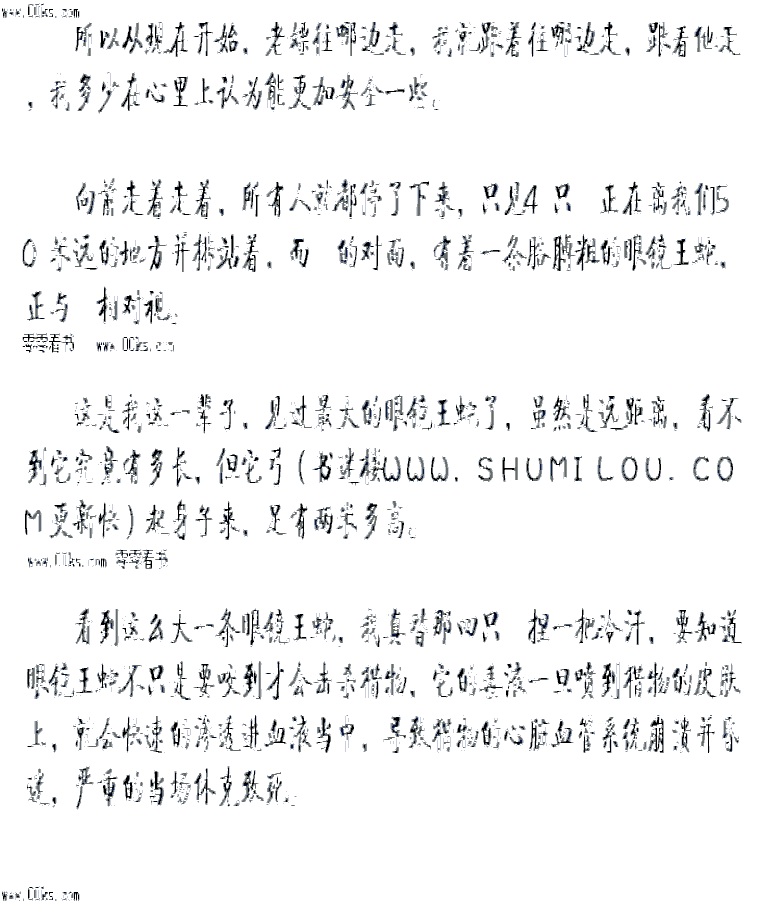 www.00ks.com
所以从现在开始，老嫖往哪边走，我就跟着往哪边走，跟着他走
，我多少在心里上认为能更加安全一些。
向前走着走着，所有人就都停了下来，只见4只 正在离我们5
0米远的地方并排站着，而 的对面，有着一条胳膊粗的眼镜王蛇，
正与 相对视。
零零看书 www.00ks.com
这是我这一辈子，见过最大的眼镜王蛇了，虽然是远距离，看不
到它究竟有多长，但它弓（书迷楼WWW.SHUMILOU.CO
M更新快）起身子来，足有两米多高。
www.00ks.com 零零看书
看到这么大一条眼镜王蛇，我真替那四只 捏一把冷汗，要知道
眼镜王蛇不只是要咬到才会击杀猎物，它的毒液一旦喷到猎物的皮肤
上，就会快速的渗透进血液当中，导致猎物的心脏血管系统崩溃并昏
迷，严重的当场休克致死。
www.00ks.com